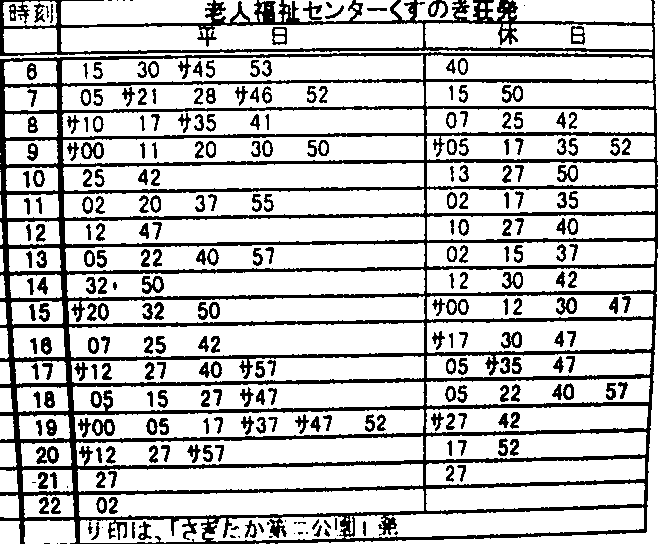 時刻 老人福祉センターくすのき荘発
平日 休日
6 15 30 サ45 53 40
7 05 サ21 28 サ46 52 15 50
8 サ10 17 サ35 41 07 25 42
9 サ00 11 20 30 50 サ05 17 35 52
10 25 42 13 27 50
11 02 20 37 55 02 17 35
12 12 47 10 27 40
13 05 22 40 57 02 15 37
14 32 50 12 30 42
15 サ20 32 50 サ00 12 30 47
16 07 25 42 サ17 30 47
17 サ12 27 40 サ57 05 サ35 47
18 05 15 27 サ47 05 22 40 57
19 サ00 05 17 サ37 サ47 52 サ27 42
20 サ12 27 サ57 17 52
21 27 27
22 02
サ印は、「さぎたか第二公園」発